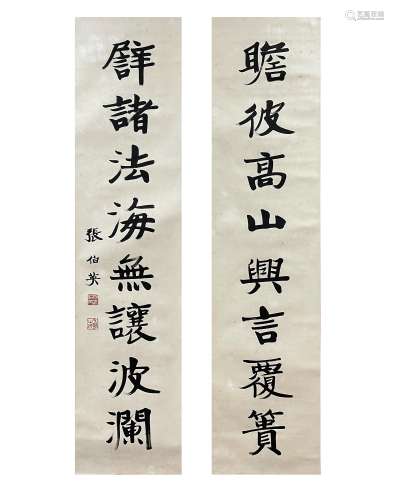 瞻彼高山興言覆簣
辟諸法海無讓波瀾
張伯英